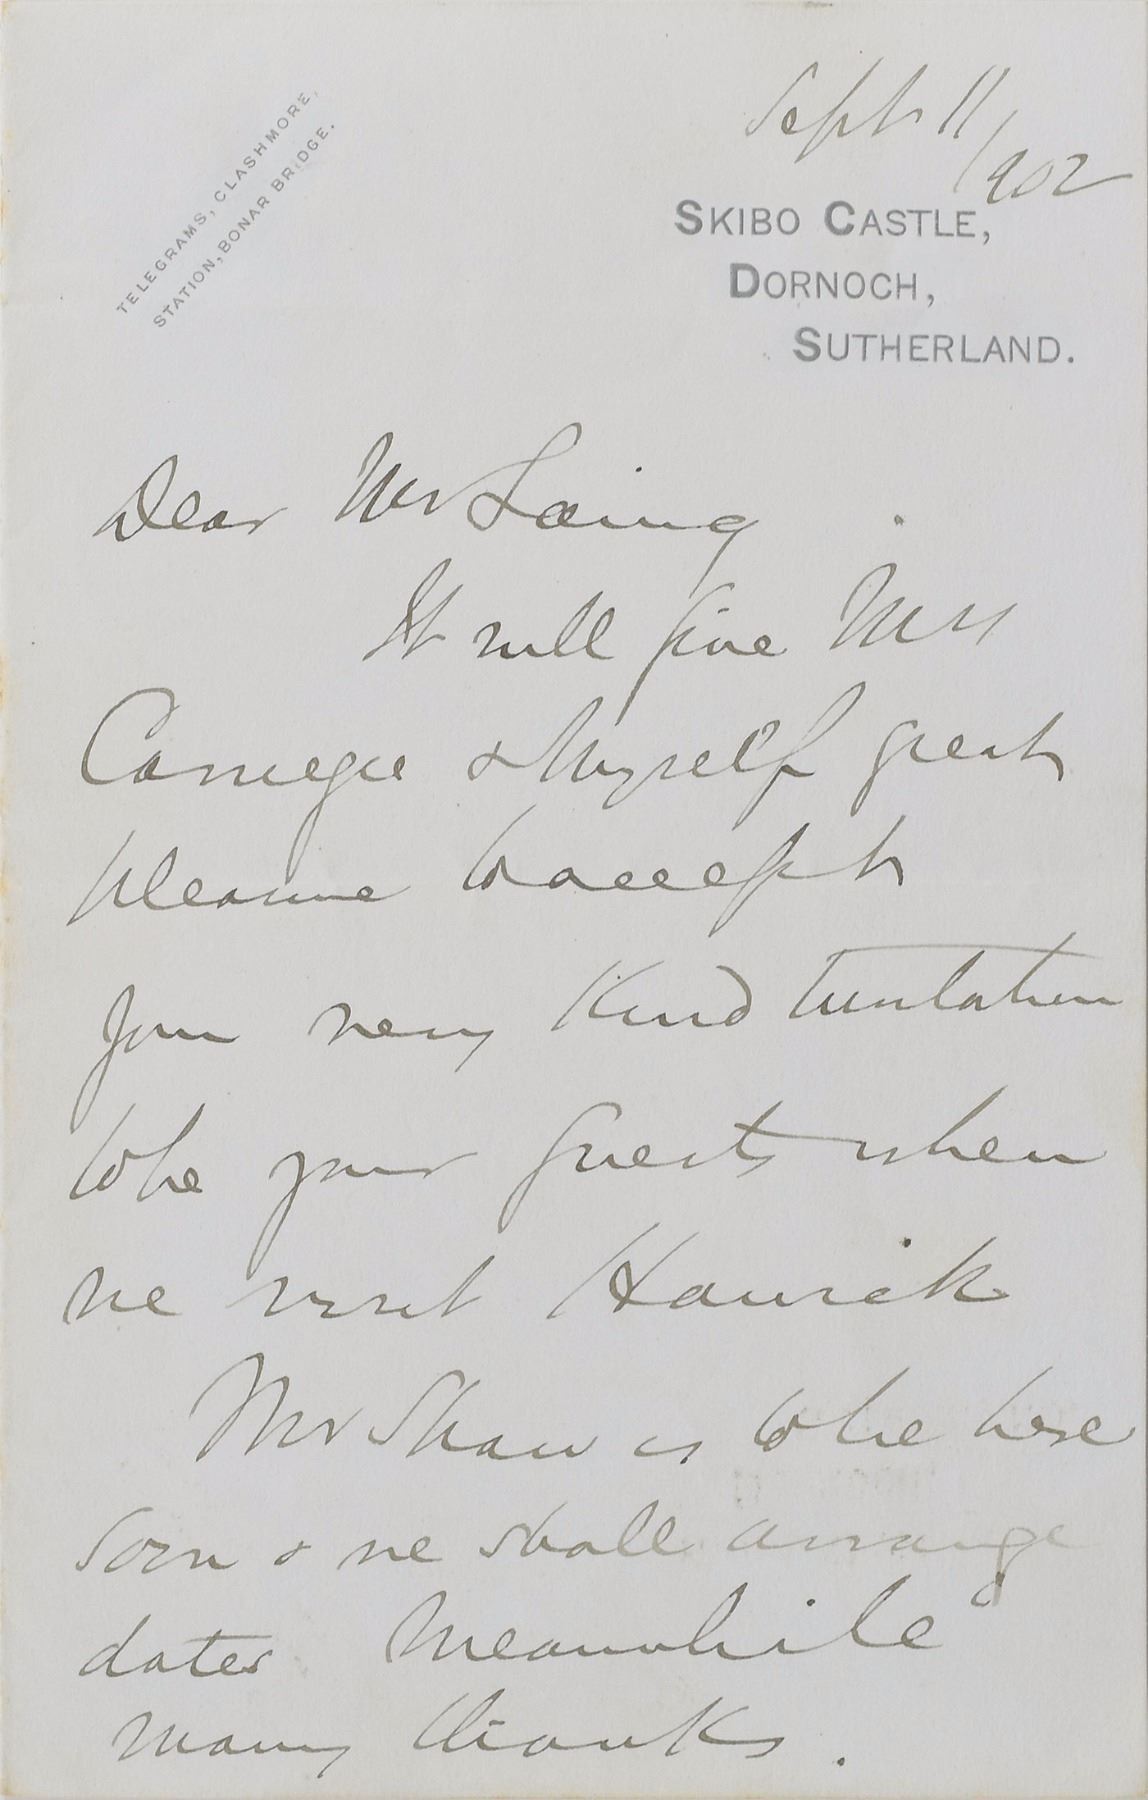 Sept 11/902
TELEGRAMS, CLASHMORE,
STATION, BONAR BRIDGE.
SKIBO CASTLE,
DORNOCH,
SUTHERLAND.
Dear Mr Laing
It will give Mrs
Carnegie & Myself great
pleasure to accept
your very kind Invitation
to be your guests when
we visit Hawick
Mr Shaw is to be here
soon & we shall arrange
dates Meanwhile
many thanks.